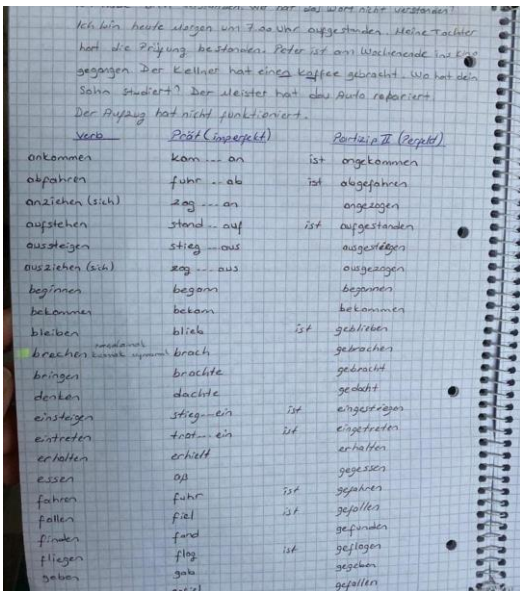 wo hat das Wort nicht verstanden?
Ich bin heute Morgen um 7.00 Uhr aufgestanden. Meine Tochter
hat die Prüfung bestanden. Peter ist am Wochenende ins Kino
gegangen. Der Kellner hat einen Kaffee gebracht. Wo hat dein
Sohn studiert? Der Meister hat das Auto repariert.
Der Aufzug hat nicht funktioniert.
Verb Prät (imperfekt) Partizip II (Perfekt)
ankommen kam --- an ist angekommen
abfahren fuhr --- ab ist abgefahren
anziehen (sich) zog --- an angezogen
aufstehen stand -- auf ist aufgestanden
aussteigen stieg --- aus ausgestiegen
ausziehen (sich) zog --- aus ausgezogen
beginnen begann begonnen
bekommen bekam bekommen
bleiben blieb ist geblieben
brechen brach gebrochen
bringen brachte gebracht
denken dachte gedacht
einsteigen stieg---ein ist eingestiegen
eintreten trat---ein ist eingetreten
erhalten erhielt erhalten
essen aß gegessen
fahren fuhr ist gefahren
fallen fiel ist gefallen
finden fand gefunden
fliegen flog ist geflogen
geben gab gegeben
gefallen